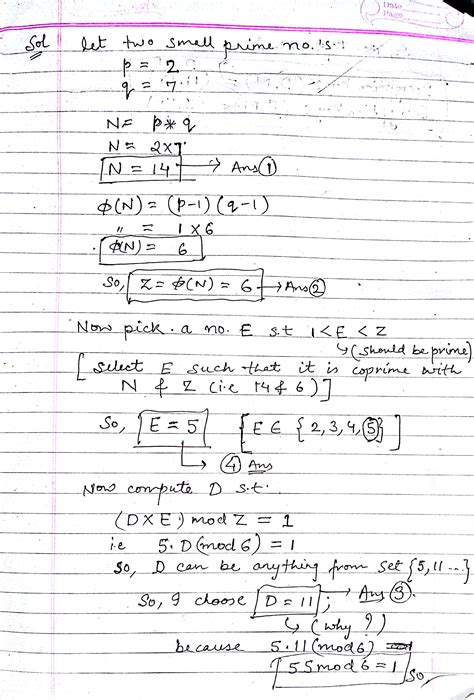 Date
Page
Sol let two small prime no.'s.
p = 2
q = 7
N = p * q
N = 2×7
N = 14 → Ans ①
ϕ(N) = (p-1) (q-1)
" = 1 × 6
ϕ(N) = 6
So, Z = ϕ(N) = 6 → Ans ②
Now pick a no. E s.t 1 < E < Z
↳ (should be prime)
[ select E such that it is coprime with
N & Z (i.e 14 & 6) ]
So, E = 5 [ E ∈ { 2, 3, 4, ⑤ } ]
↳ ④ Ans
Now compute D s.t.
(D × E) mod Z = 1
i.e 5. D (mod 6) = 1
So, D can be anything from set {5, 11 ...}
So, I choose D = 11 ; → Ans ③.
↳ (why ?)
because 5.11 (mod 6)
55 mod 6 = 1 So,